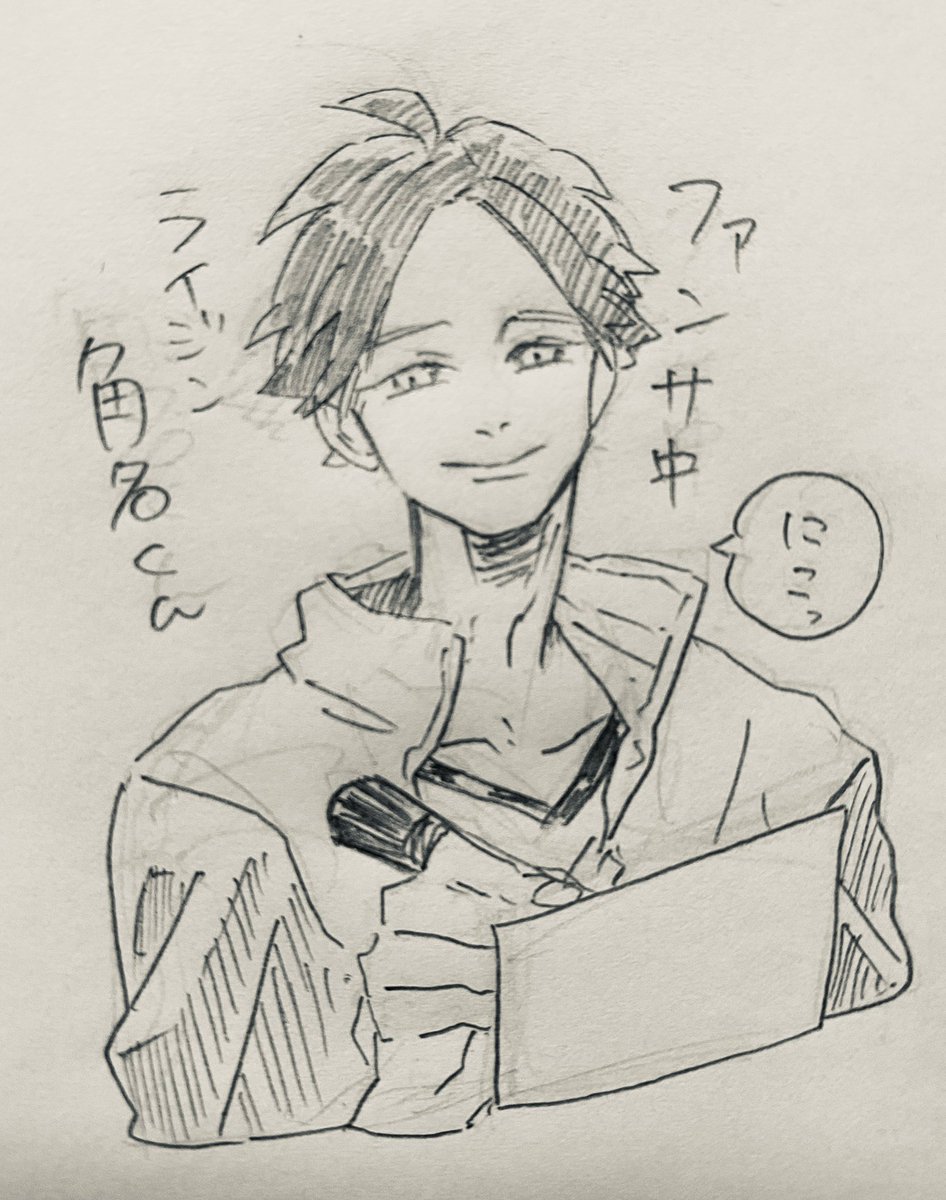 ファンサ中
にこっ
ライジン
角名くん